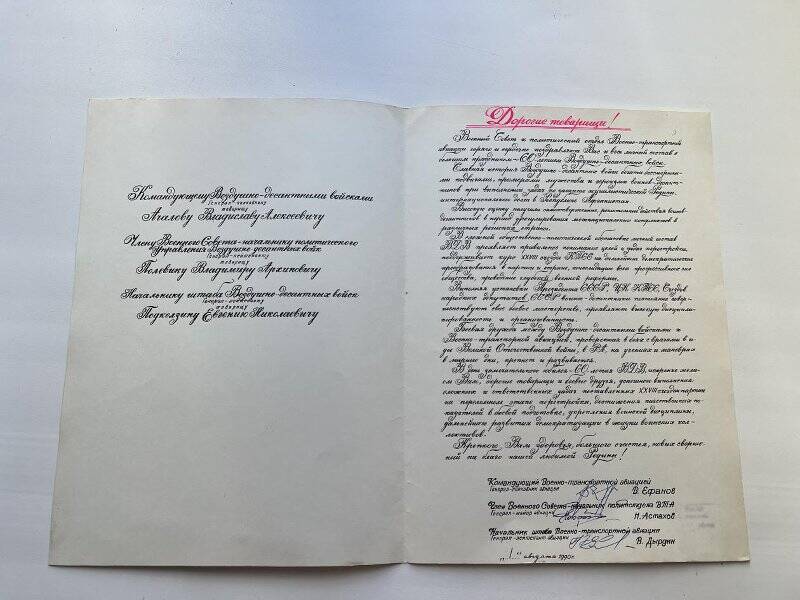 Командующему Воздушно-десантными войсками
генерал-полковнику
товарищу
Ачалову Владиславу Алексеевичу
Члену Военного Совета-начальнику политического
Управления Воздушно-десантных войск
товарищу
Полевику Владимиру Архиповичу
Начальнику штаба Воздушно-десантных войск
генерал-лейтенанту
товарищу
Подколзину Евгению Николаевичу
Дорогие товарищи!
Военный Совет и политический отдел Военно-транспортной
авиации горячо и сердечно поздравляют Вас и весь личный состав с
большим праздником-60-летием Воздушно-десантных войск.
Славная история Воздушно-десантных войск полна
подвигами, примерами мужества и героизма воинов-десант-
ников при выполнении задач по защите социалистической Родины,
интернационального долга в Республике Афганистан.
Высокую оценку получили самоотверженные, решительные действия воинов-
десантников в период урегулирования межнациональных конфликтов в
различных регионах страны.
В сложной общественно-политической обстановке личный состав
ВДВ проявляет правильное понимание целей и задач перестройки,
поддерживает курс XXVIII съезда КПСС на дальнейшие демократические
преобразования в партии и стране, консолидацию всех прогрессивных сил
общества,
Выполняя установки Президента СССР, ЦК КПСС, Съезда
народных депутатов СССР воины-десантники постоянно совер-
шенствуют свое боевое мастерство, проявляют высокую дисципли-
нированность и организованность.
Боевая дружба между Воздушно-десантными войсками и
Военно-транспортной авиацией, проверенная в боях с врагами в го-
ды Великой Отечественной войны, в РА, на учениях и маневрах
в мирные дни, крепнет и развивается.
В день замечательного юбилея-60-летия ВДВ, искренне жела-
ем Вам, дорогие товарищи и боевые друзья, успешного выполнения
сложных и ответственных задач поставленных XXVIII съездом партии
на переломном этапе перестройки, достижения качественных по-
казателей в боевой подготовке, укрепления воинской дисциплины,
дальнейшего развития демократизации в жизни воинских кол-
лективов.
Крепкого Вам здоровья, большого счастья, новых сверше-
ний на благо нашей любимой Родины!
Командующий Военно-транспортной авиацией
Генерал-полковник авиации
В. Ефанов
Член Военного Совета-начальник политотдела ВТА
Генерал-майор авиации
Н. Астахов
Начальник штаба Военно-транспортной авиации
Генерал-лейтенант авиации
В. Дырдин
„1“ августа 1990г.